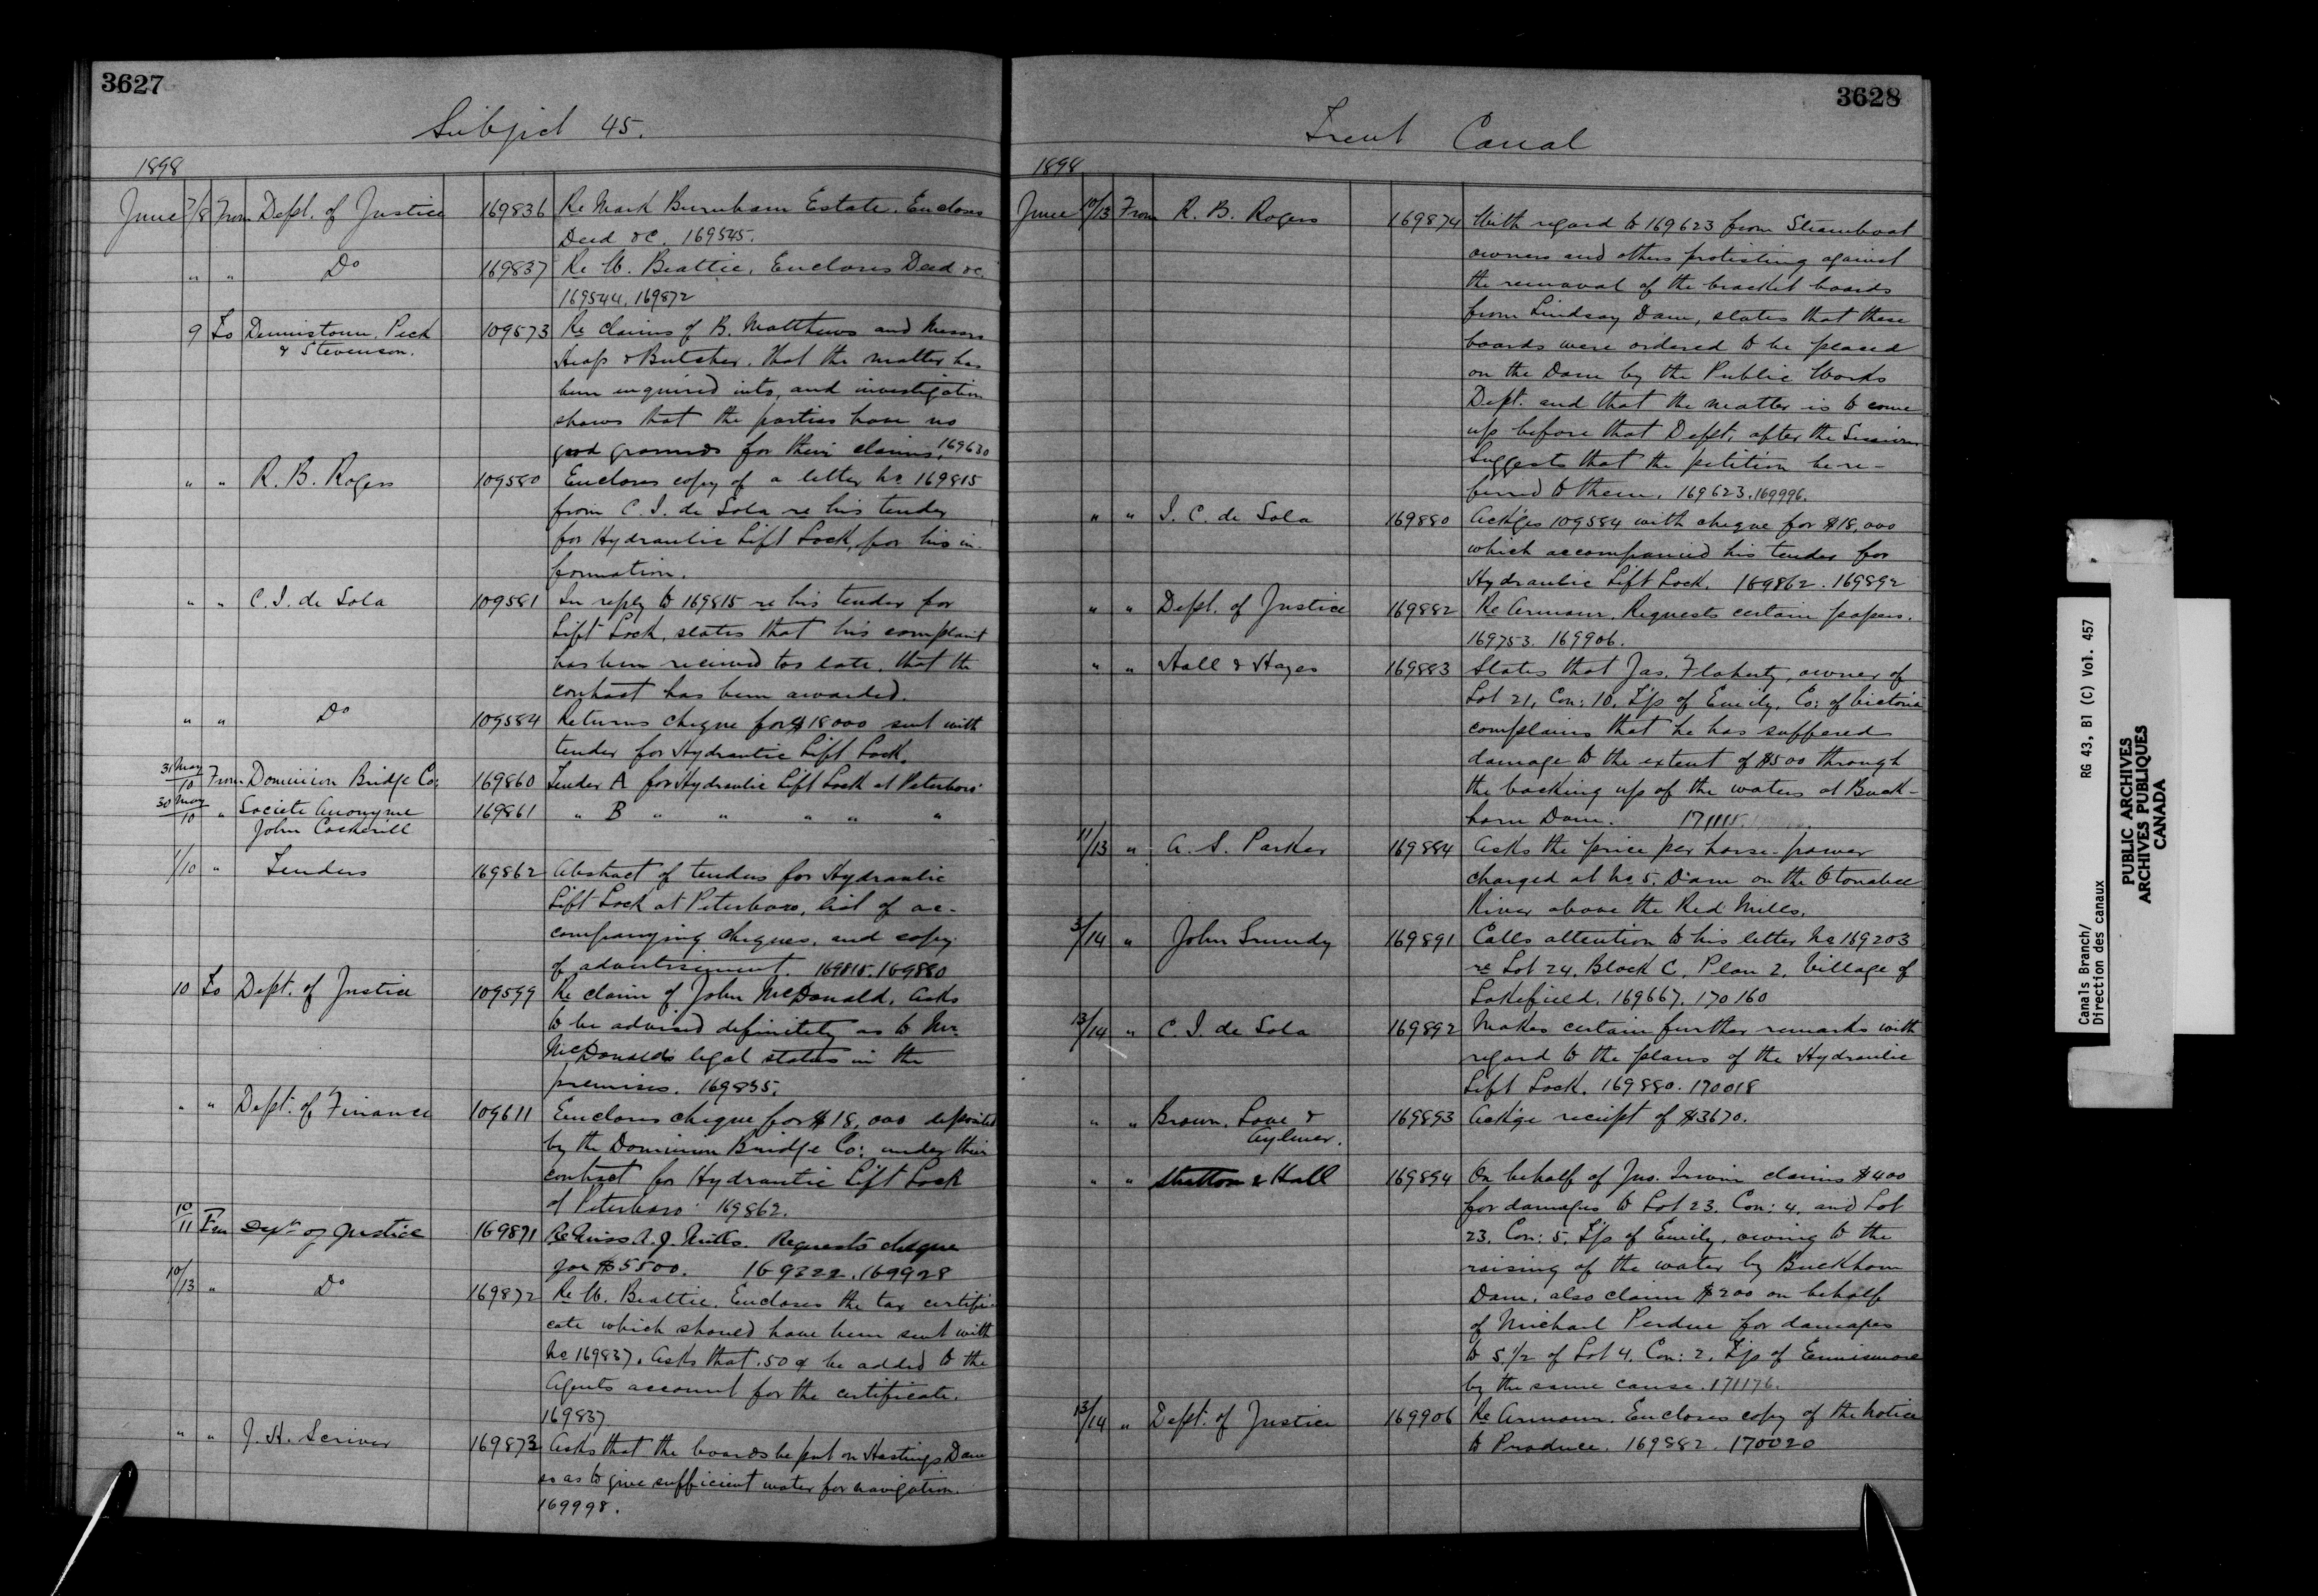 3627
Subject 45.
1898
June 7/8 From Dept. of Justice 169836 Re Mark Burnham Estate. Encloses
Deed &c. 169545.
" " Do 169837 Re W. Beattie. Encloses Deed &c.
169544. 169872
9 To Dennistoun, Peck 109573 Re claims of B. Matthews and Messrs
& Stevenson. Heap & Butcher. That the matter has
been inquired into, and investigation
shows that the parties have no
good grounds for their claims. 169630
" " R. B. Rogers 109580 Encloses copy of a letter No 169815
from C. I. de Sola re his tender
for Hydraulic Lift Lock, for his in-
formation.
" " C. I. de Sola 109581 In reply to 169815 re his tender for
Lift Lock, states that his complaint
has been received too late, that the
contract has been awarded.
" " Do 109584 Returns cheque for $18000 sent with
tender for Hydraulic Lift Lock.
31 May/10 From Dominion Bridge Co: 169860 Tender A for Hydraulic Lift Lock at Peterboro'
30 May/10 " Societe Anonyme 169861 " B " " " " "
John Cockerill
1/10 " Tenders 169862 Abstract of tenders for Hydraulic
Lift Lock at Peterboro, list of ac-
companying cheques, and copy
of advertisement. 169815. 169880
10 To Dept. of Justice 109599 Re claim of John McDonald. Asks
to be advised definitely as to Mr.
McDonald's legal status in the
premises. 169835.
" " Dept. of Finance 109611 Encloses cheque for $18,000 deposited
by the Dominion Bridge Co: under their
contract for Hydraulic Lift Lock
at Peterboro' 169862.
10/11 From Dept of Justice 169871 Re Miss A. J. Mills. Requests cheque
for $5500. 169322. 169928
10/13 " Do 169872 Re W. Beattie. Encloses the tax certifi-
cate which should have been sent with
No 169837. Asks that .50¢ be added to the
Agents account for the certificate.
169837
" " J. H. Scriver 169873 Asks that the boards be put on Hastings Dam
so as to give sufficient water for navigation.
169998.
3628
Trent Canal
1898
June 10/13 From R. B. Rogers 169874 With regard to 169623 from Steamboat
owners and others protesting against
the removal of the bracket boards
from Lindsay Dam, states that these
boards were ordered to be placed
on the Dam by the Public Works
Dept. and that the matter is to come
up before that Dept. after the Session.
Suggests that the petition be re-
ferred to them. 169623. 169996.
" " I. C. de Sola 169880 Ackges 109584 with cheque for $18,000
which accompanied his tender for
Hydraulic Lift Lock. 169862. 169892
" " Dept. of Justice 169882 Re Armour. Requests certain papers.
169753. 169906.
" " Hall & Hayes 169883 States that Jas. Flaherty, owner of
Lot 21, Con: 10, T/p of Emily, Co: of Victoria
complains that he has suffered
damage to the extent of $500 through
the backing up of the waters at Buck-
horn Dam. 171115.
11/13 " A. S. Parker 169884 Asks the price per horse-power
charged at No 5. Dam on the Otonabee
River above the Red Mills.
3/14 " John Grundy 169891 Calls attention to his letter No 169203
re Lot 24. Block C. Plan 2. Village of
Lakefield. 169667. 170160
13/14 " C. I. de Sola 169892 Makes certain further remarks with
regard to the plans of the Hydraulic
Lift Lock. 169880. 170018
" " Brown, Love & 169893 Ackge receipt of $3670.
Aylmer.
" " Stratton & Hall 169894 On behalf of Jno. Irwin claims $400
for damages to Lot 23. Con: 4. and Lot
23. Con: 5. T/p of Emily, owing to the
raising of the water by Buckhorn
Dam, also claim $200 on behalf
of Michael Perdue for damages
to S. 1/2 of Lot 4. Con: 2. T/p of Ennismore
by the same cause. 171176.
13/14 " Dept. of Justice 169906 Re Armour. Encloses copy of the Notice
to Produce. 169882. 170020
Canals Branch/
Direction des canaux
RG 43, B1 (C) Vol. 457
PUBLIC ARCHIVES
ARCHIVES PUBLIQUES
CANADA